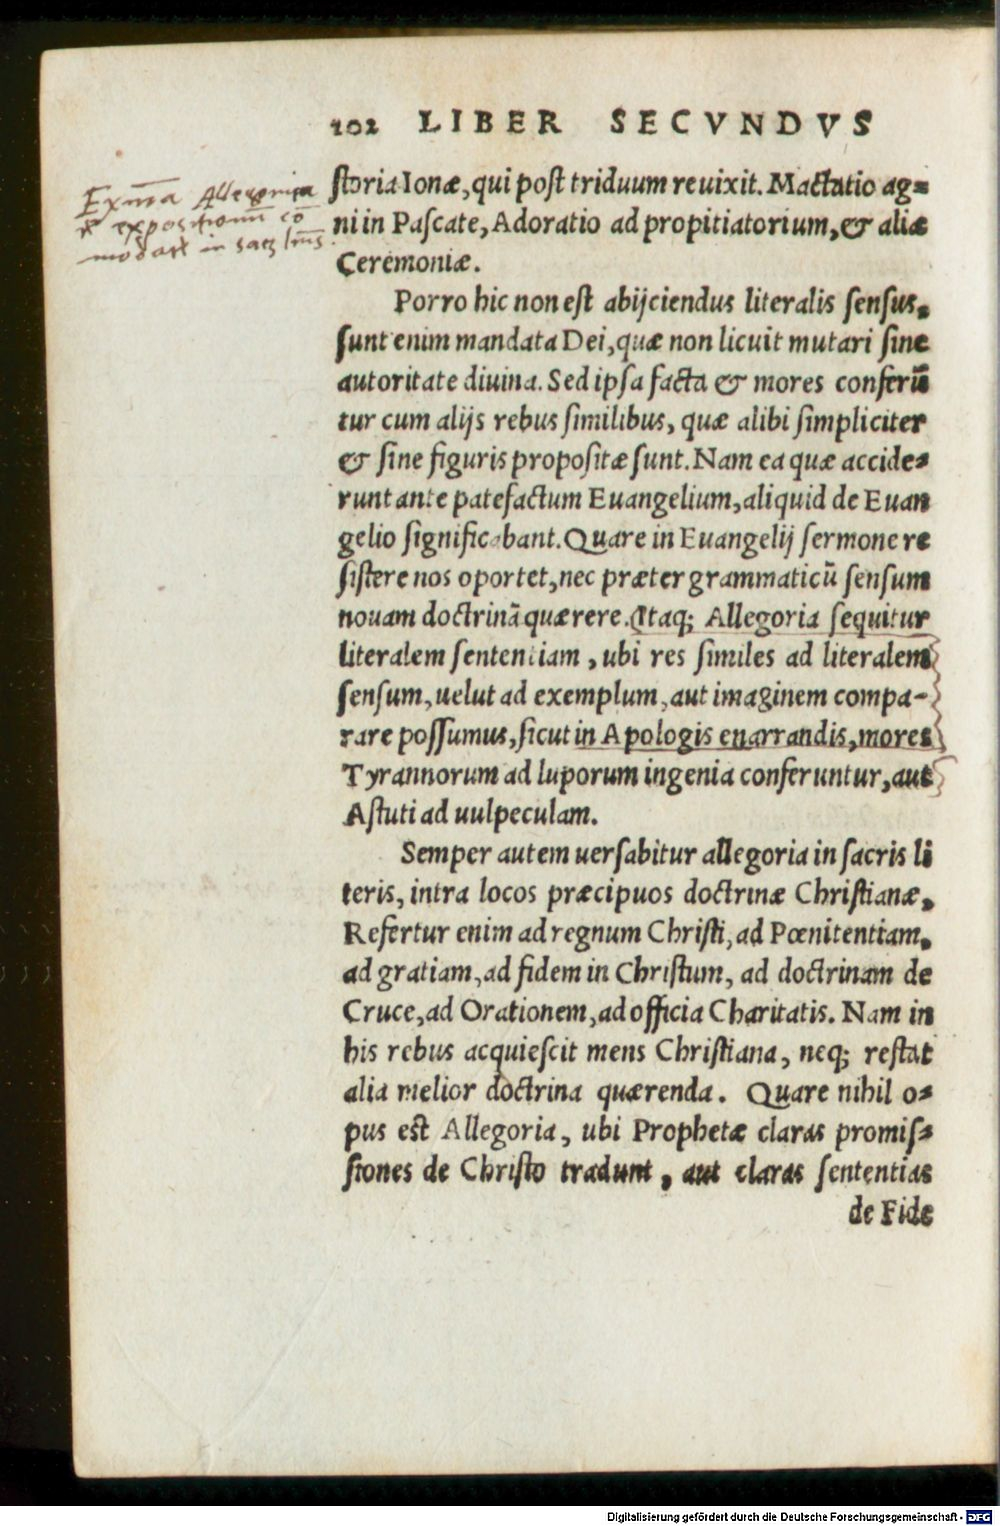 102 LIBER SECVNDVS
Allegorica
expositionũ cõ
in
storia Ionæ, qui post triduum reuixit. Mactatio ag=
ni in Pascate, Adoratio ad propitiatorium, & aliæ
Ceremoniæ.
Porro hic non est abijciendus literalis sensus,
sunt enim mandata Dei, quæ non licuit mutari sine
autoritate diuina. Sed ipsa facta & mores conferũ
tur cum alijs rebus similibus, quæ alibi simpliciter
& sine figuris propositæ sunt. Nam ea quæ accide=
runt ante patefactum Euangelium, aliquid de Euan
gelio significabant. Quare in Euangelij sermone re
sistere nos oportet, nec præter grammaticũ sensum
nouam doctrinã quærere. Itaq; Allegoria sequitur
literalem sententiam, ubi res similes ad literalem
sensum, uelut ad exemplum, aut imaginem compa-
rare possumus, sicut in Apologis enarrandis, mores
Tyrannorum ad luporum ingenia conferuntur, aut
Astuti ad uulpeculam.
Semper autem uersabitur allegoria in sacris li
teris, intra locos præcipuos doctrinæ Christianæ,
Refertur enim ad regnum Christi, ad Pœnitentiam,
ad gratiam, ad fidem in Christum, ad doctrinam de
Cruce, ad Orationem, ad officia Charitatis. Nam in
his rebus acquiescit mens Christiana, neq; restat
alia melior doctrina quærenda. Quare nihil o=
pus est Allegoria, ubi Prophetæ claras promis=
siones de Christo tradunt, aut claras sententias
de Fide
Digitalisierung gefördert durch die Deutsche Forschungsgemeinschaft - DFG